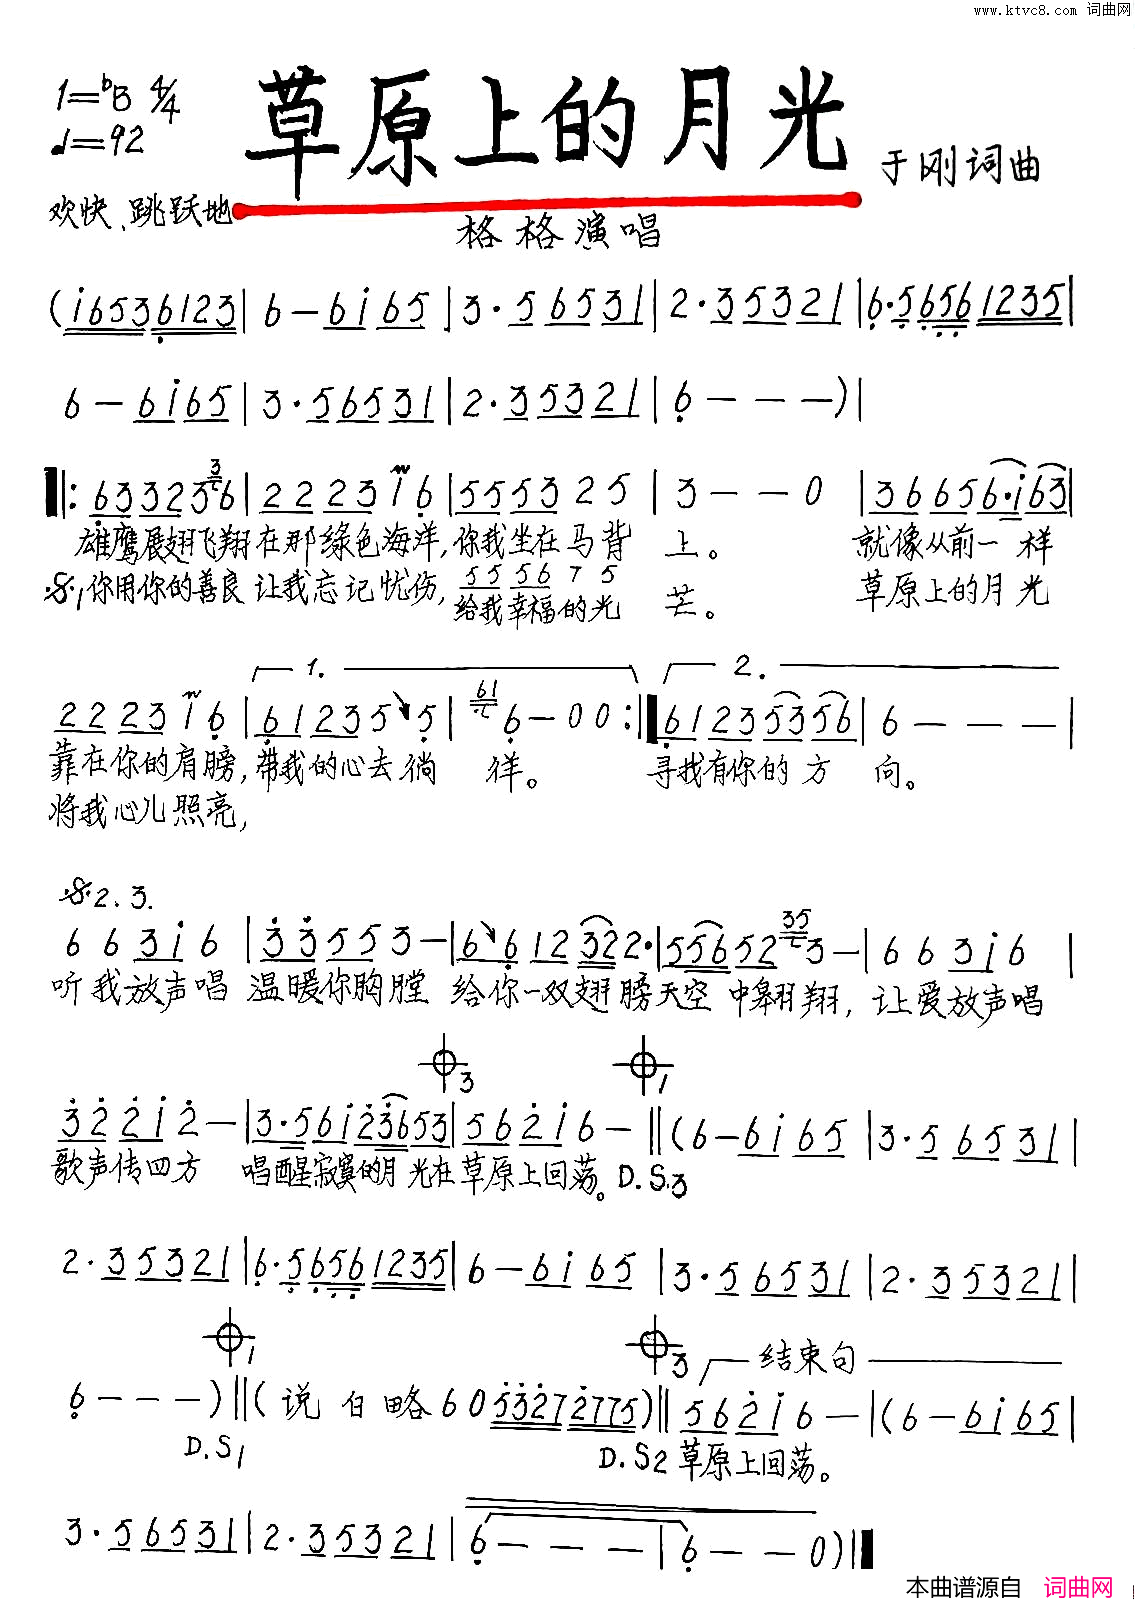 www.ktvc8.com 词曲网
1=♭B 4/4
♩=92
草原上的月光
于刚词曲
欢快、跳跃地
格格演唱
(i653 6123 | 6 – 6i 65 | 3·5 6531 | 2·3 5321 | 6·5 656 1235 |
6 – 6i65 | 3·5 6531 | 2·3 5321 | 6 – – – ) |
‖: 63 323 56 | 22 23 1 6 | 55 53 2 5 | 3 – – 0 | 36 656·i 63 |
雄鹰展翅飞翔在那绿色海洋,你我坐在马背 上。 就像从前一 样
𝄋1你用你的善良 让我忘记忧伤, 55 56 7 5 草原上的月 光
给我幸福的光 芒。
1. 2.
22 23 1 6 | 61 23 5 5 | 61 6 – 0 0 :‖ 61 23 53 56 | 6 – – – |
靠在你的肩膀,带我的心去徜 徉。 寻找有你的 方 向。
将我心儿照亮,
𝄋2.3.
6 6 3i 6 | 33 55 3 – | 6 6 12 32 2· | 556 52 35 3 – | 6 6 3i 6 |
听我放声唱 温暖你胸膛 给你一双翅膀天空 中翱翔, 让爱放声唱
3 1
32 21 2 – | 3·5 6i 236 53 | 56 2i 6 – ‖ (6 – 6i 65 | 3·5 6531 |
歌声传四方 唱醒寂寞的月 光在草原上回荡。D.S.3
2·3 5321 | 6·5 656 1235 | 6 – 6i 65 | 3·5 6531 | 2·3 5321 |
1 3 结束句
6 – – – ) ‖ ( 说 白 略 6 0 5327 2775 ) ‖ 56 2i 6 – | (6 – 6i65 |
D.S1 D.S2 草原上回荡。
3·5 6531 | 2·3 5321 | 6 – – – | 6 – – 0) ‖
本曲谱源自 词曲网